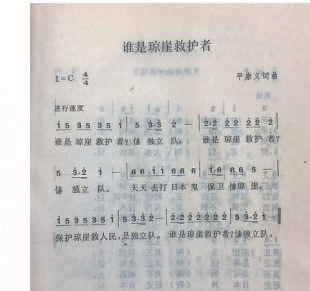 谁是琼崖救护者
1=C 4/4
平崇义词曲
进行速度
i 5 3 5 3 5 i | 5 3·3 2 — | 2·2 2 2 2 2 2 |
谁是琼崖救护者?俦独立队。 谁是琼崖救护者?
5 3·2 1 — | 6 6 i i 6 6 6 | i·6 6 6 5 — |
俦独立队。 天天去打日本鬼 保卫俦琼崖。
i 5 3 5 3 5 i | 5 3·3 2 — | 2·2 2 2 2 2 2 | 5 3·2 1
保护琼崖救人民,是独立队。 谁是琼崖救护者?俦独立队。